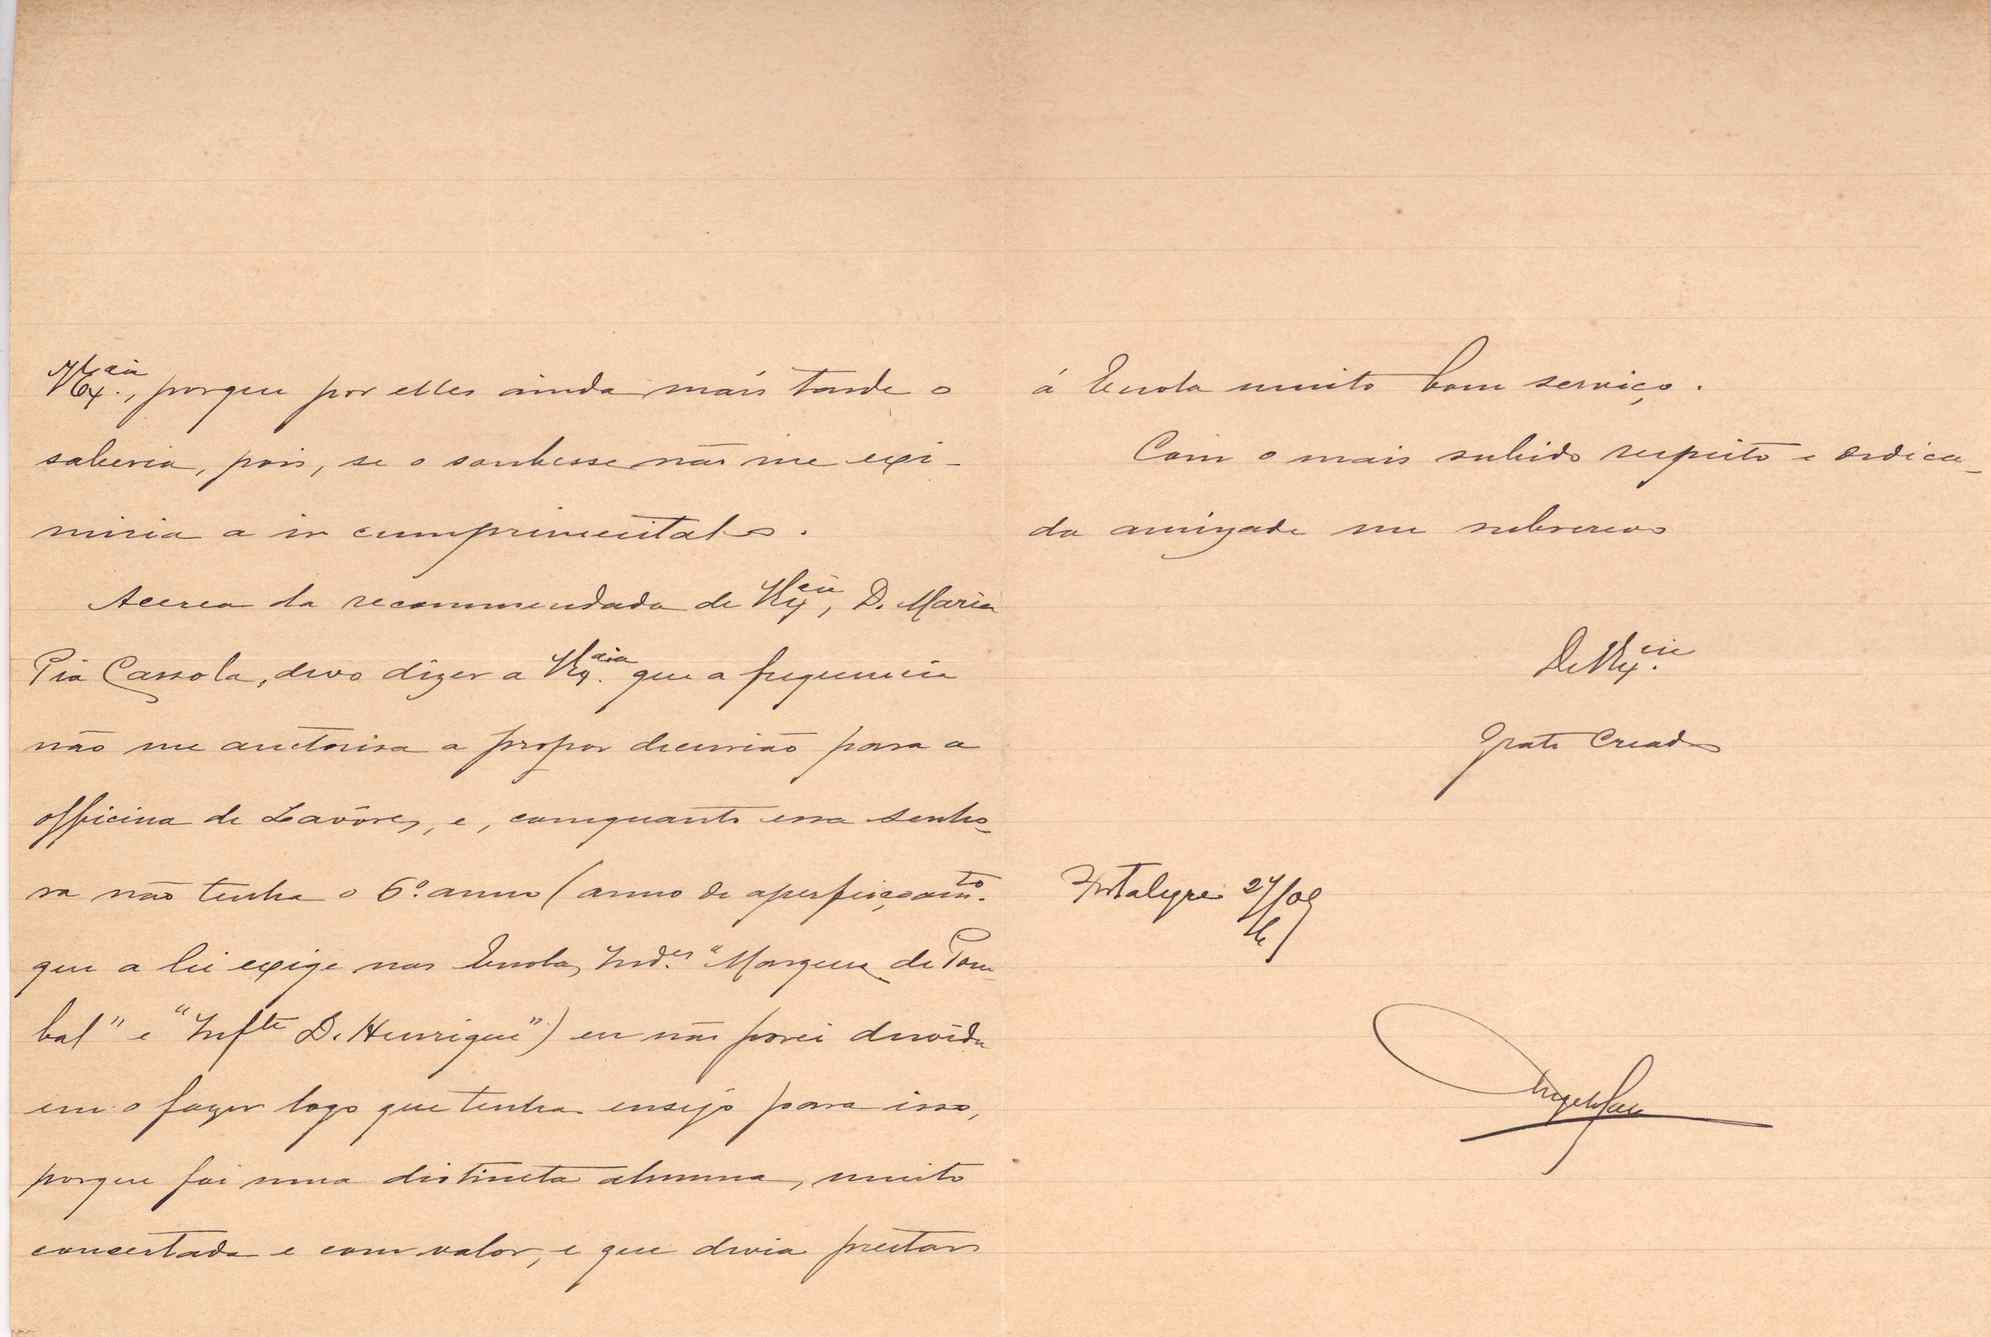 V Ex.cia, porque por elles ainda mais tarde o
saberia, pois, se o soubesse não me exi-
miria a ir cumprimental-o.
Acerca da recommendada de V Ex.cia, D. Maria
Pia Cassola, devo dizer a V Ex.cia que a frequencia
não me auctorisa a propor divisão para a
officina de Lavôres, e, comquanto essa senho-
ra não tenha o 6.º anno (anno de aperfeiçoam.to
que a lei exige nas Escolas Ind.es "Marquez de Pom-
bal" e "Inf.te D. Henrique") eu não porei duvida
em o fazer logo que tenha ensejo para isso,
porque foi uma distincta alumna, muito
concertada e com valor, e que devia prestar
á Escola muito bom serviço.
Com o mais subido respeito e dedica-
da amizade me subscrevo
De V Ex.cia
Grato Creado
Portalegre 27/09